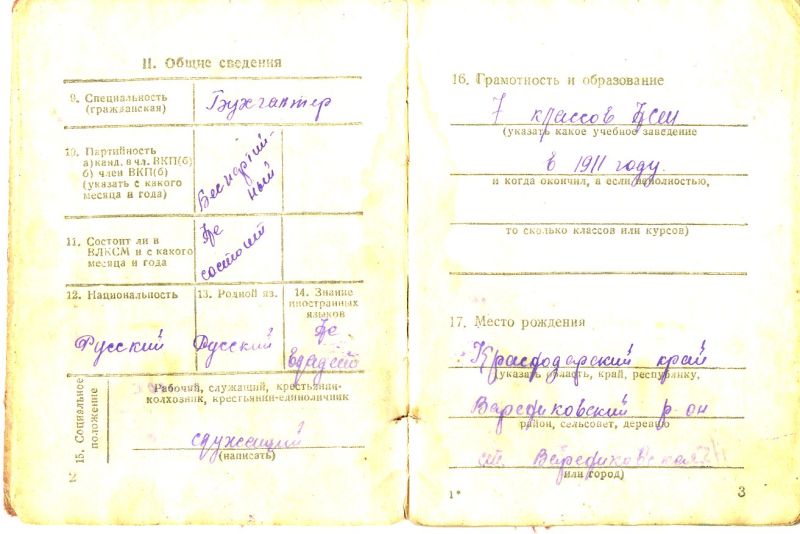 II. Общие сведения
9. Специальность
(гражданская)
Бухгалтер
10. Партийность
а) канд. в чл. ВКП(б)
б) член ВКП(б)
(указать с какого
месяца и года)
Беспартий-
ный
11. Состоит ли в
ВЛКСМ и с какого
месяца и года
Не
состоит
12. Национальность
Русский
13. Родной яз.
Русский
14. Знание
иностранных
языков
Не
владеет
15. Социальное
положение
Рабочий, служащий, крестьянин-
колхозник, крестьянин-единоличник
служащий
(написать)
2
16. Грамотность и образование
7 классов
(указать какое учебное заведение
в 1911 году.
и когда окончил, а если неполностью,
то сколько классов или курсов)
17. Место рождения
Краснодарский край
(указать область, край, республику,
Варениковский р-он
район, сельсовет, деревню
ст. Варениковская
или город)
1*
3